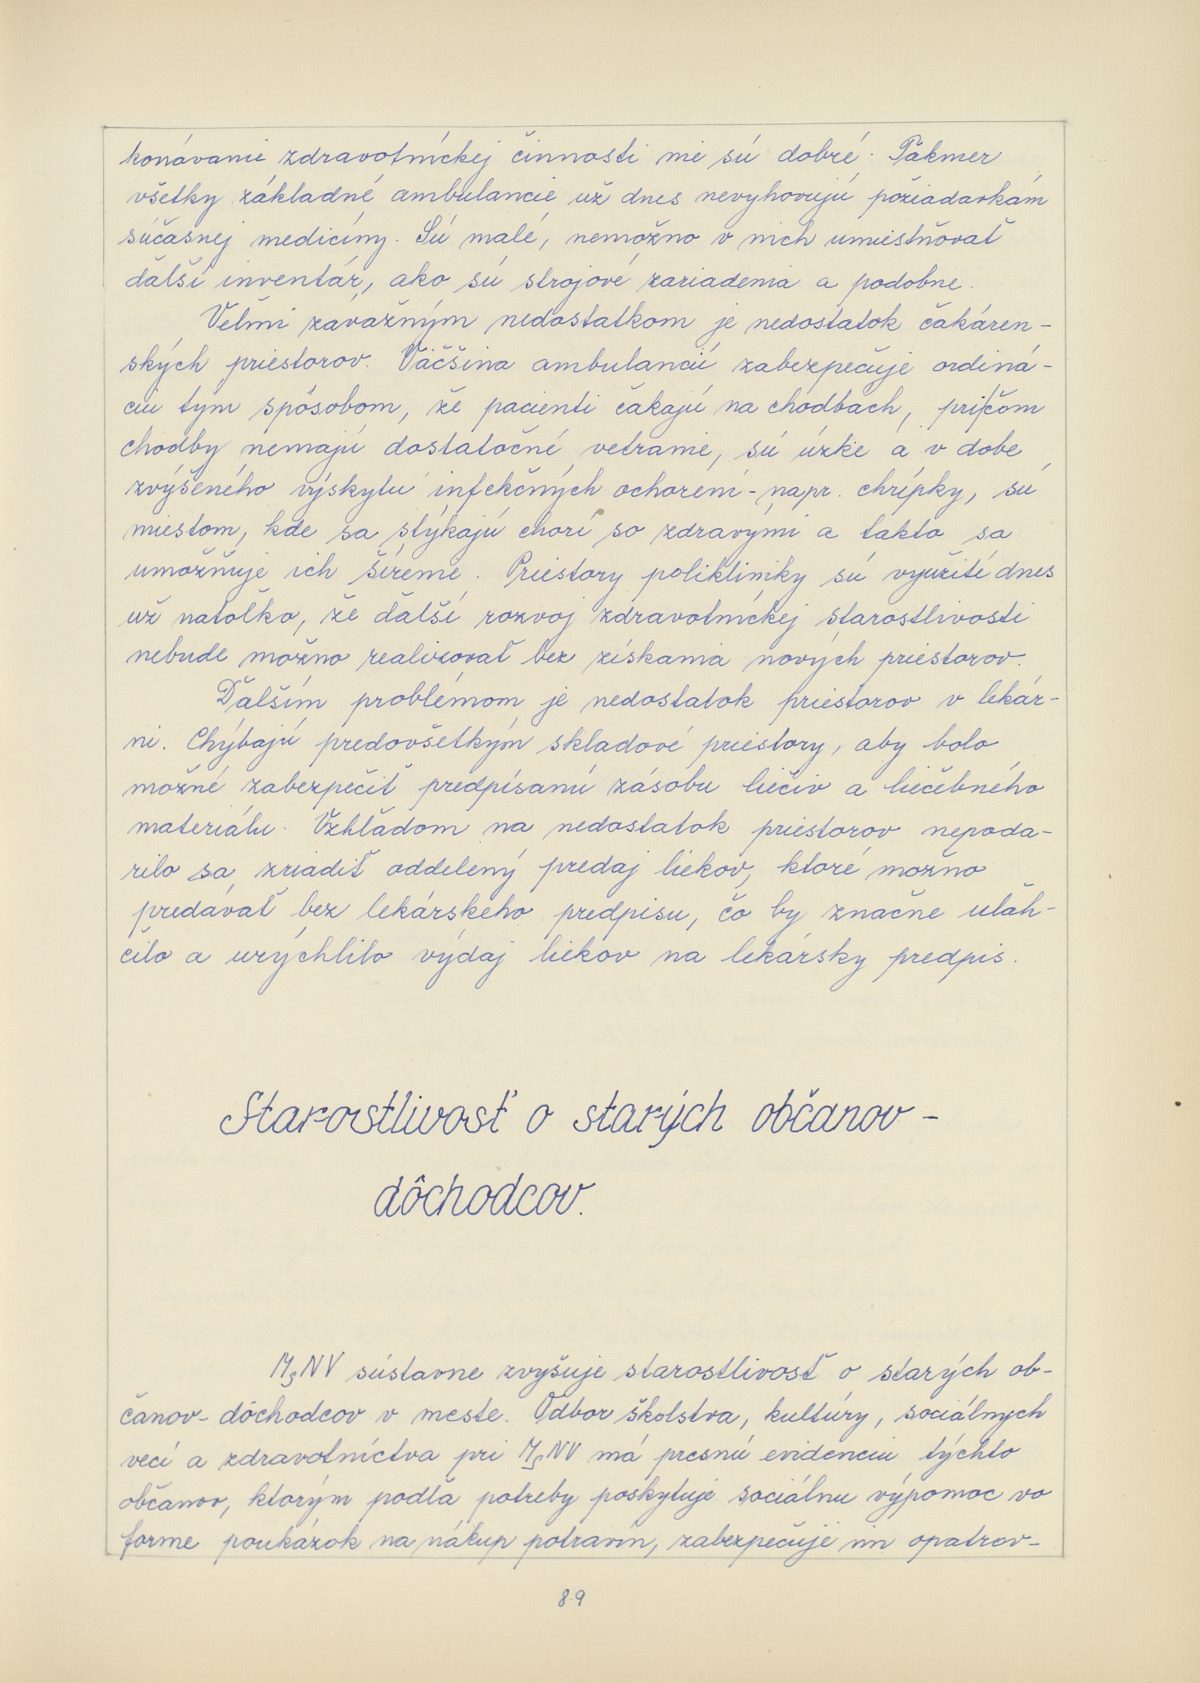 konávanie zdravotníckej činnosti nie sú dobré. Takmer
všetky základné ambulancie už dnes nevyhovujú požiadavkám
súčasnej medicíny. Sú malé, nemožno v nich umiestňovať
ďalší inventár, ako sú strojové zariadenia a podobne.
Veľmi závažným nedostatkom je nedostatok čakáren-
ských priestorov. Väčšina ambulancií zabezpečuje ordiná-
ciu tým spôsobom, že pacienti čakajú na chodbách, pričom
chodby nemajú dostatočné vetranie, sú úzke a v dobe
zvýšeného výskytu infekčných ochorení - napr. chrípky, sú
miestom, kde sa stýkajú chorí so zdravými a takto sa
umožňuje ich šírenie. Priestory polikliniky sú využité dnes
už natoľko, že ďalší rozvoj zdravotníckej starostlivosti
nebude možno realizovať bez získania nových priestorov.
Ďalším problémom je nedostatok priestorov v lekár-
ni. Chýbajú predovšetkým skladové priestory, aby bolo
možné zabezpečiť predpísanú zásobu liečiv a liečebného
materiálu. Vzhľadom na nedostatok priestorov nepoda-
rilo sa zriadiť oddelený predaj liekov, ktoré možno
predávať bez lekárskeho predpisu, čo by značne uľah-
čilo a urýchlilo výdaj liekov na lekársky predpis.
Starostlivosť o starých občanov -
dôchodcov.
MsNV sústavne zvyšuje starostlivosť o starých ob-
čanov - dôchodcov v meste. Odbor školstva, kultúry, sociálnych
vecí a zdravotníctva pri MsNV má presnú evidenciu týchto
občanov, ktorým podľa potreby poskytuje sociálnu výpomoc vo
forme poukázok na nákup potravín, zabezpečuje im opatrov-
89